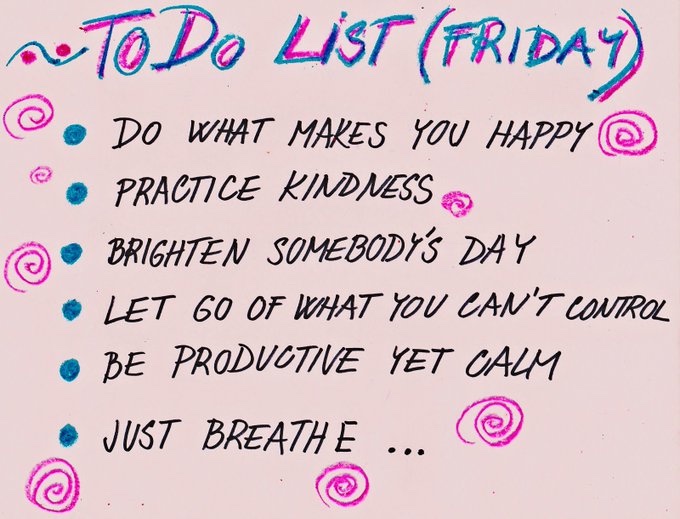 TO DO LIST (FRIDAY)
DO WHAT MAKES YOU HAPPY
PRACTICE KINDNESS
BRIGHTEN SOMEBODY'S DAY
LET GO OF WHAT YOU CAN'T CONTROL
BE PRODUCTIVE YET CALM
JUST BREATHE ...